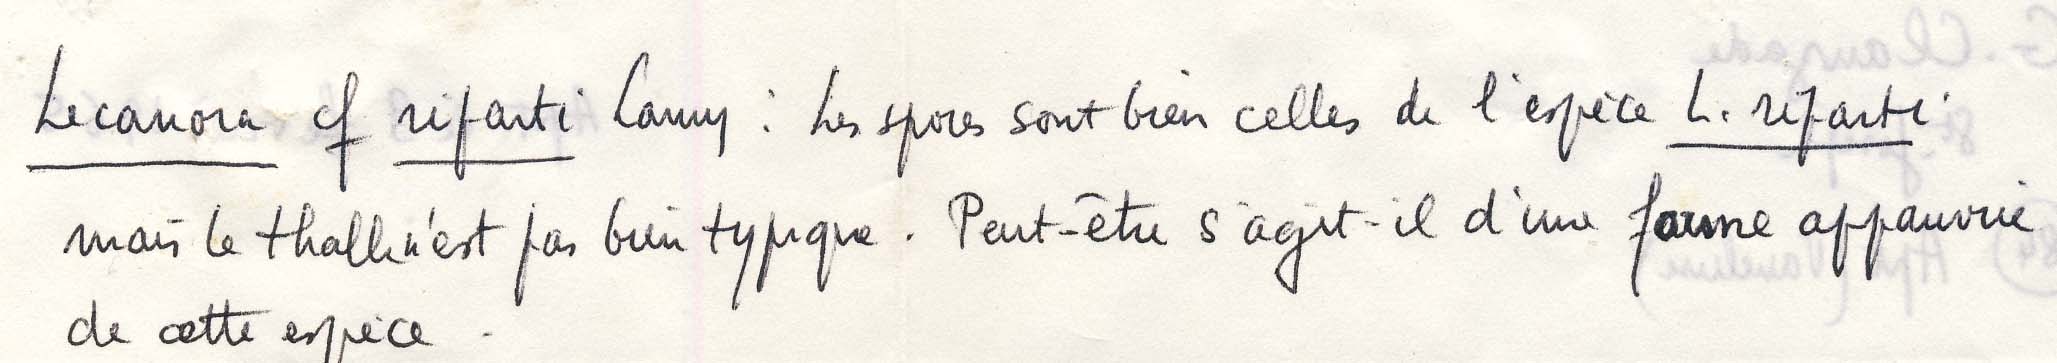 Lecanora cf riparti Lamy : Les spores sont bien celles de l'espèce L. riparti
mais le thalle n'est pas bien typique. Peut-être s'agit-il d'une forme appauvrie
de cette espèce.